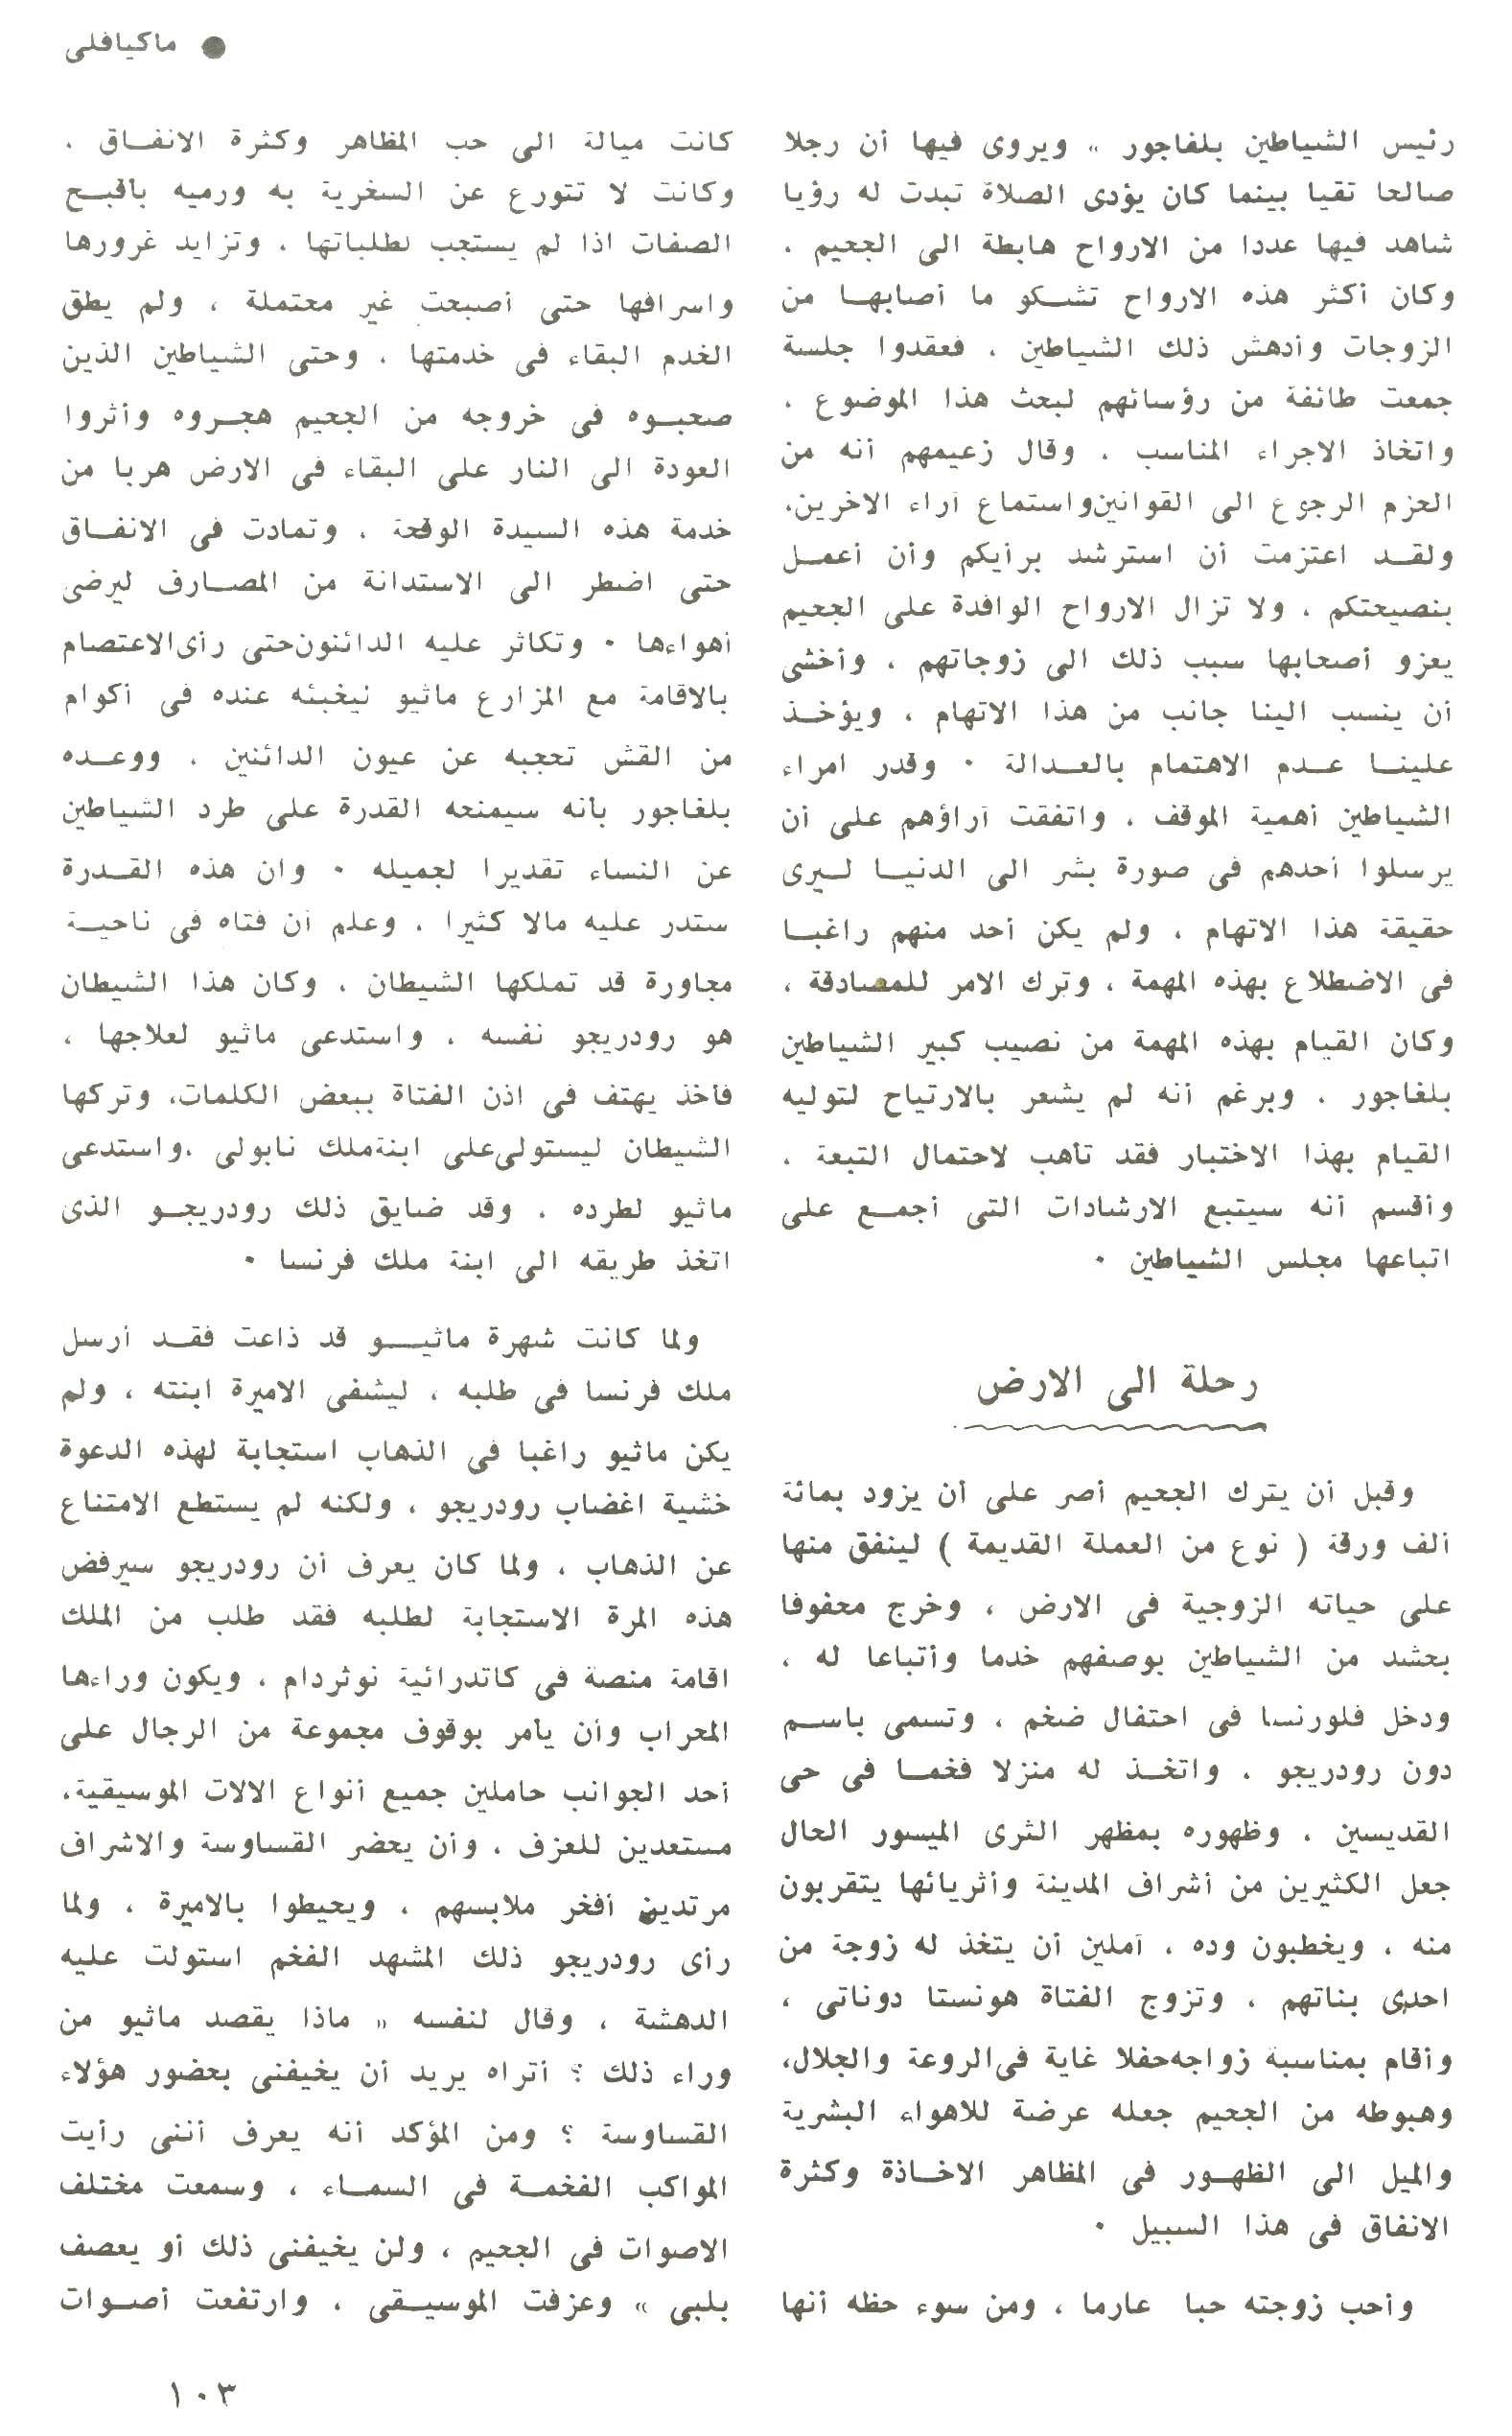 ● ماكيافلى
رئيس الشياطين بلفاجور » ويروى فيها أن رجلا
صالحا تقيا بينما كان يؤدى الصلاة تبدت له رؤيا
شاهد فيها عددا من الارواح هابطة الى الجحيم ،
وكان أكثر هذه الارواح تشكو ما أصابها من
الزوجات وأدهش ذلك الشياطين ، فعقدوا جلسة
جمعت طائفة من رؤسائهم لبحث هذا الموضوع ،
واتخاذ الاجراء المناسب ، وقال زعيمهم أنه من
الحزم الرجوع الى القوانين واستماع آراء الاخرين،
ولقد اعتزمت أن استرشد برأيكم وأن أعمل
بنصيحتكم ، ولا تزال الارواح الوافدة على الجحيم
يعزو أصحابها سبب ذلك الى زوجاتهم ، وأخشى
أن ينسب الينا جانب من هذا الاتهام ، ويؤخذ
علينا عدم الاهتمام بالعدالة . وقدر امراء
الشياطين أهمية الموقف ، واتفقت آراؤهم على أن
يرسلوا أحدهم فى صورة بشر الى الدنيا ليرى
حقيقة هذا الاتهام ، ولم يكن أحد منهم راغبا
فى الاضطلاع بهذه المهمة ، وترك الامر للمصادقة ،
وكان القيام بهذه المهمة من نصيب كبير الشياطين
بلفاجور ، وبرغم أنه لم يشعر بالارتياح لتوليه
القيام بهذا الاختبار فقد تأهب لاحتمال التبعة ،
وأقسم أنه سيتبع الارشادات التى أجمع على
اتباعها مجلس الشياطين .
رحلة الى الارض
وقبل أن يترك الجحيم أصر على أن يزود بمائة
ألف ورقة ( نوع من العملة القديمة ) لينفق منها
على حياته الزوجية فى الارض ، وخرج محفوفا
بحشد من الشياطين بوصفهم خدما وأتباعا له ،
ودخل فلورنسا فى احتفال ضخم ، وتسمى باسم
دون رودريجو ، واتخذ له منزلا فخما فى حى
القديسين ، وظهوره بمظهر الثرى الميسور الحال
جعل الكثيرين من أشراف المدينة وأثريائها يتقربون
منه ، ويخطبون وده ، آملين أن يتخذ له زوجة من
احدى بناتهم ، وتزوج الفتاة هونستا دوناتى ،
وأقام بمناسبة زواجه حفلا غاية فى الروعة والجلال،
وهبوطه من الجحيم جعله عرضة للاهواء البشرية
والميل الى الظهور فى المظاهر الاخاذة وكثرة
الانفاق فى هذا السبيل .
وأحب زوجته حبا عارما ، ومن سوء حظه أنها
كانت ميالة الى حب المظاهر وكثرة الانفاق ،
وكانت لا تتورع عن السخرية به ورميه بأقبح
الصفات اذا لم يستجب لطلباتها ، وتزايد غرورها
واسرافها حتى أصبحت غير محتملة ، ولم يطق
الخدم البقاء فى خدمتها ، وحتى الشياطين الذين
صحبوه فى خروجه من الجحيم هجروه وأثروا
العودة الى النار على البقاء فى الارض هربا من
خدمة هذه السيدة الوقحة ، وتمادت فى الانفاق
حتى اضطر الى الاستدانة من المصارف ليرضى
أهواءها . وتكاثر عليه الدائنون حتى رأى الاعتصام
بالاقامة مع المزارع ماثيو ليخبئه عنده فى أكوام
من القش تحجبه عن عيون الدائنين ، ووعده
بلفاجور بأنه سيمنحه القدرة على طرد الشياطين
عن النساء تقديرا لجميله . وان هذه القدرة
ستدر عليه مالا كثيرا ، وعلم أن فتاه فى ناحية
مجاورة قد تملكها الشيطان ، وكان هذا الشيطان
هو رودريجو نفسه ، واستدعى ماثيو لعلاجها ،
فأخذ يهتف فى اذن الفتاة ببعض الكلمات، وتركها
الشيطان ليستولى على ابنة ملك نابولى ،واستدعى
ماثيو لطرده ، وقد ضايق ذلك رودريجو الذى
اتخذ طريقه الى ابنة ملك فرنسا .
ولما كانت شهرة ماثيو قد ذاعت فقد أرسل
ملك فرنسا فى طلبه ، ليشفى الاميرة ابنته ، ولم
يكن ماثيو راغبا فى الذهاب استجابة لهذه الدعوة
خشية اغضاب رودريجو ، ولكنه لم يستطع الامتناع
عن الذهاب ، ولما كان يعرف أن رودريجو سيرفض
هذه المرة الاستجابة لطلبه فقد طلب من الملك
اقامة منصة فى كاتدرائية نوثردام ، ويكون وراءها
المحراب وأن يأمر بوقوف مجموعة من الرجال على
أحد الجوانب حاملين جميع أنواع الالات الموسيقية،
مستعدين للعزف ، وأن يحضر القساوسة والاشراف
مرتدين أفخر ملابسهم ، ويحيطوا بالاميرة ، ولما
رأى رودريجو ذلك المشهد الفخم استولت عليه
الدهشة ، وقال لنفسه « ماذا يقصد ماثيو من
وراء ذلك ؟ أتراه يريد أن يخيفنى بحضور هؤلاء
القساوسة ؟ ومن المؤكد أنه يعرف أننى رأيت
المواكب الفخمة فى السماء ، وسمعت مختلف
الاصوات فى الجحيم ، ولن يخيفنى ذلك أو يعصف
بلبى » وعزفت الموسيقى ، وارتفعت أصوات
١٠٣